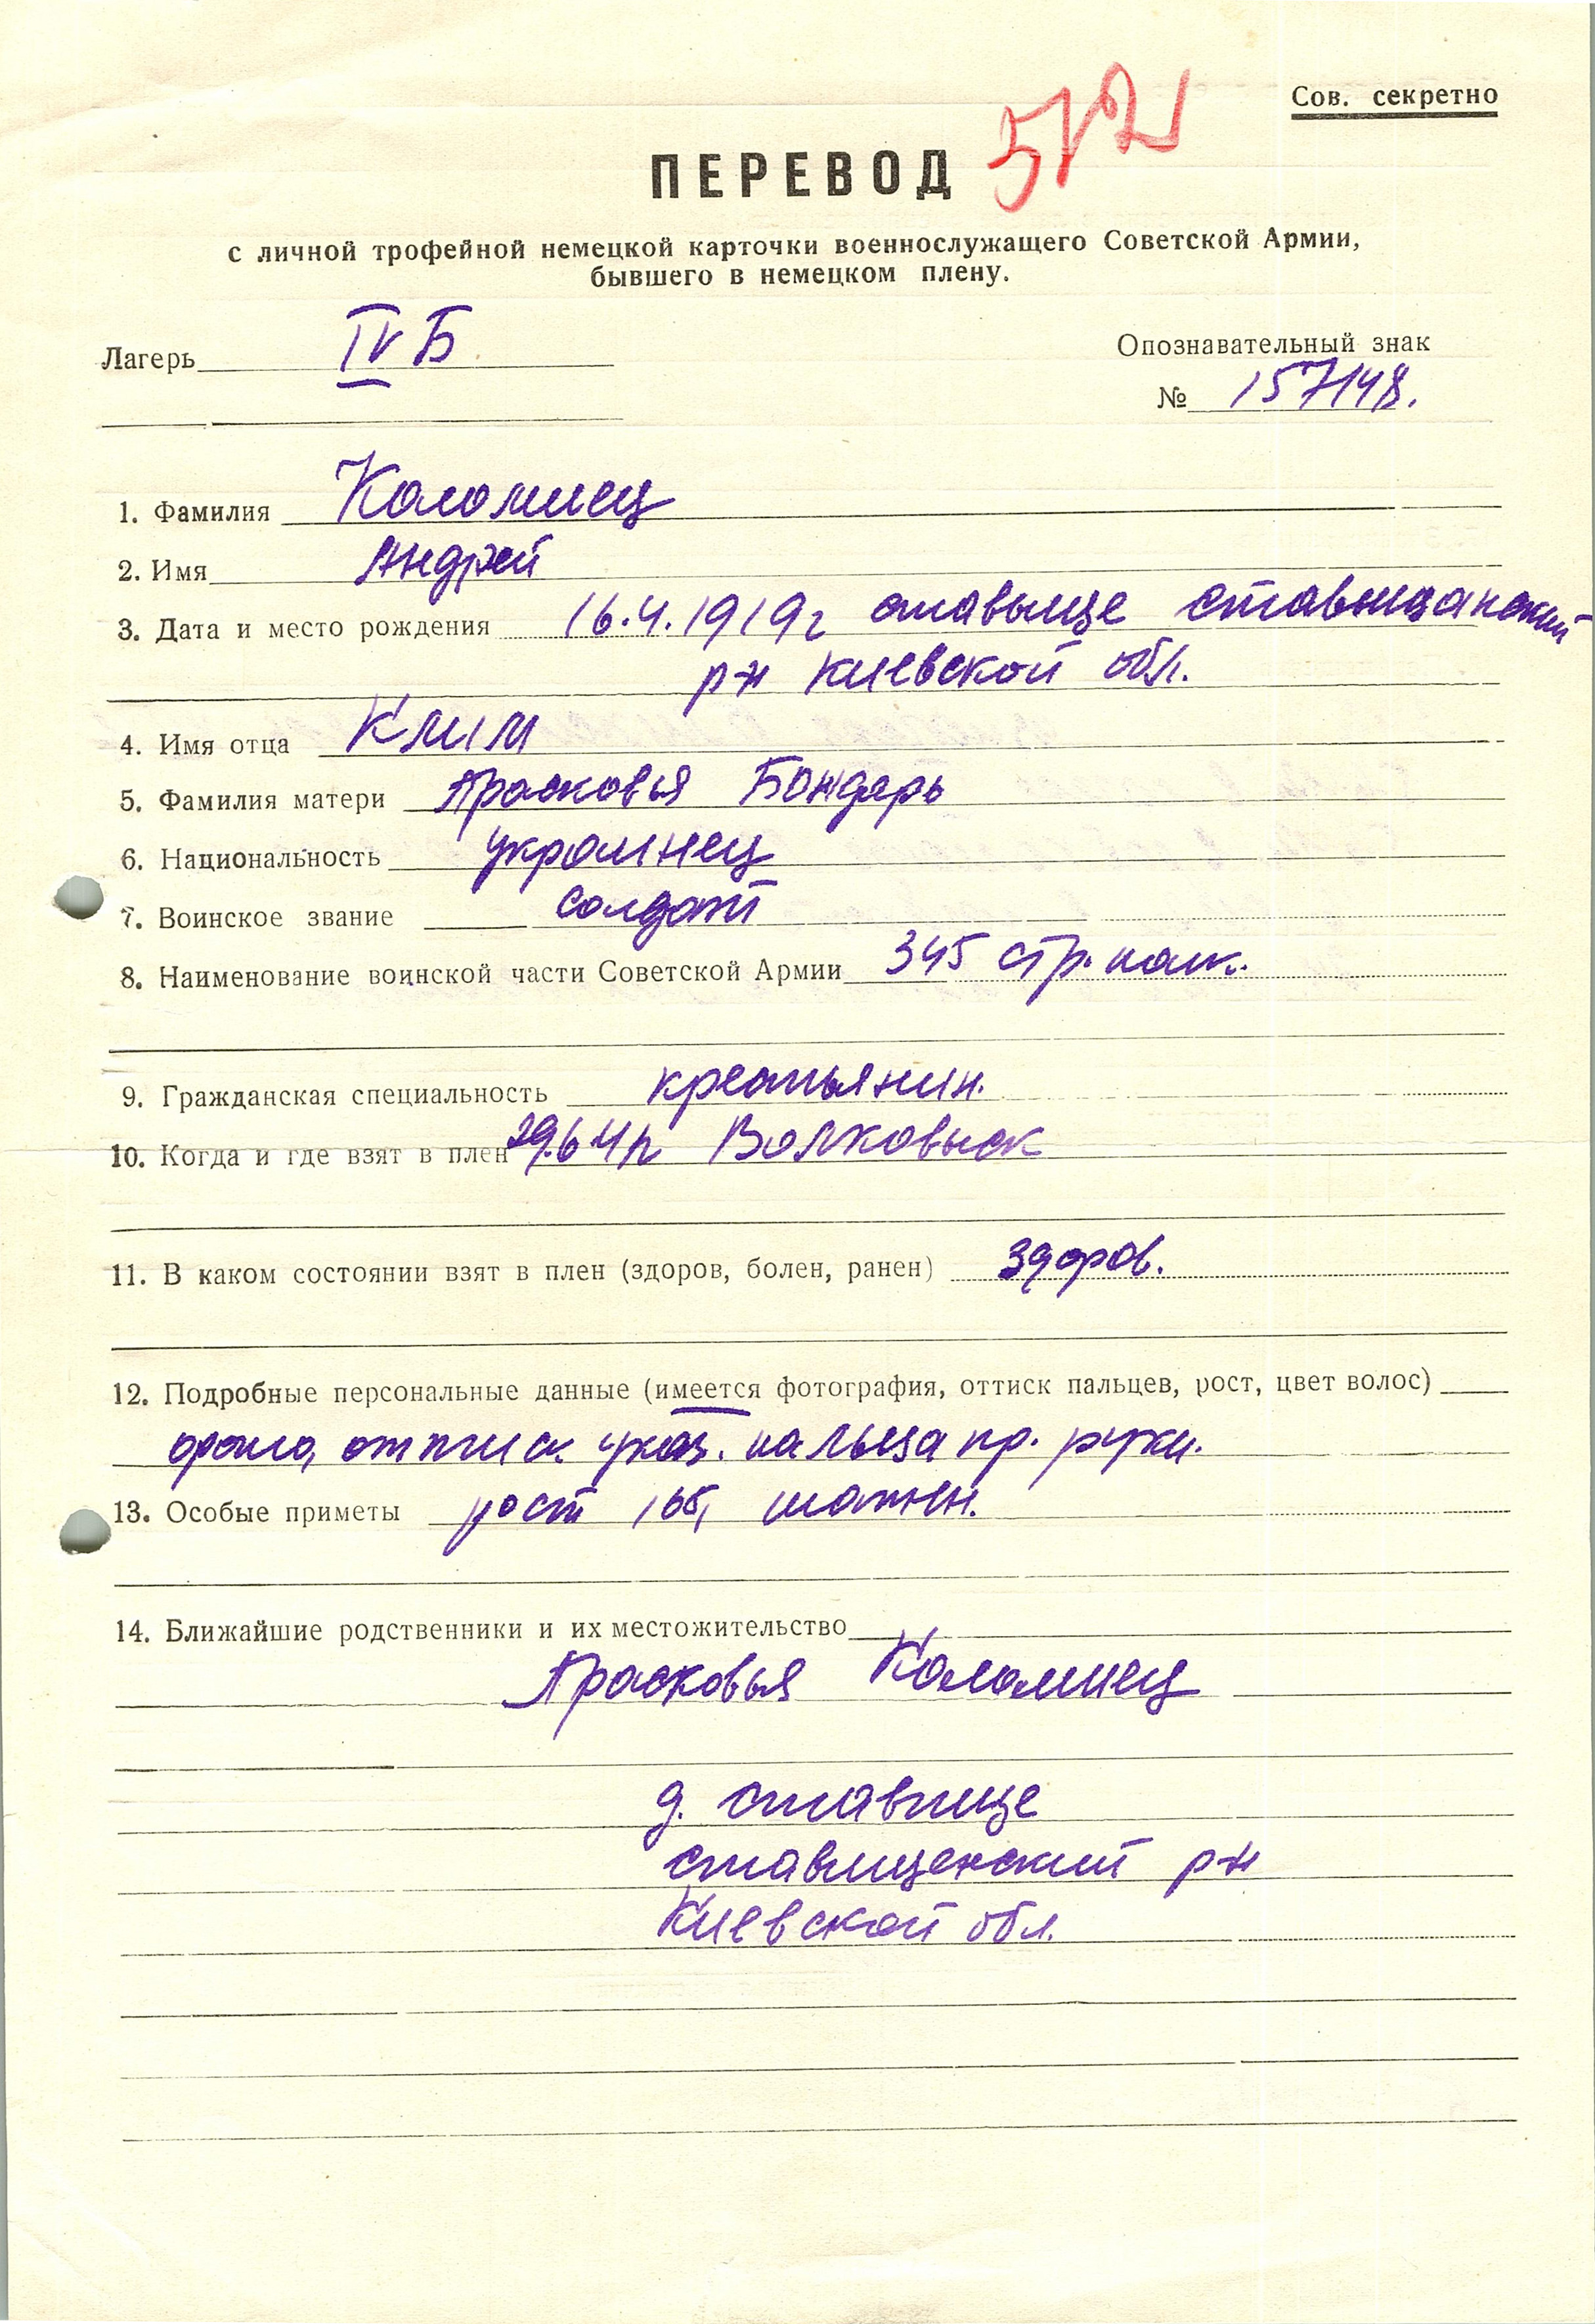 Сов. секретно
572
ПЕРЕВОД
с личной трофейной немецкой карточки военнослужащего Советской Армии,
бывшего в немецком плену.
Лагерь IV Б
Опознавательный знак
№ 157148.
1. Фамилия Коломиец
2. Имя Андрей
3. Дата и место рождения 16.4.1919г ставыще ставищанский
р-н киевской обл.
4. Имя отца Клим
5. Фамилия матери Прасковья Бондарь
6. Национальность украинец
7. Воинское звание солдат
8. Наименование воинской части Советской Армии 345 стр. полк.
9. Гражданская специальность крестьянин.
10. Когда и где взят в плен 29.6 41г Волковыск
11. В каком состоянии взят в плен (здоров, болен, ранен) здоров.
12. Подробные персональные данные (имеется фотография, оттиск пальцев, рост, цвет волос)
фото, оттиск указ. пальца пр. руки.
13. Особые приметы рост 165, шатен.
14. Ближайшие родственники и их местожительство
Прасковья Коломиец
д. ставище
ставищенский р-н
Киевской обл.